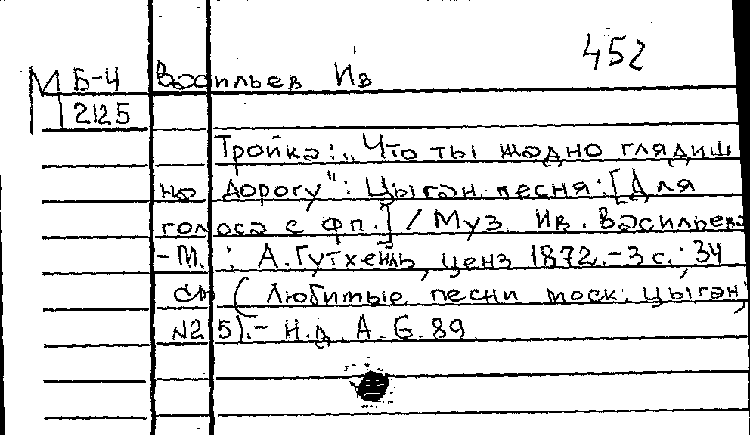 452
М Б-4 Васильев Ив
2125
Тройка: „Что ты жадно глядиш
на дорогу": Цыган. песня: [Для
голоса с фп.] / Муз. Ив. Васильева
- М. : А. Гутхейль, ценз 1872. - 3 с.; 34
см (Любимые песни моск. цыган;
№25). - Н.д. А. 6. 89